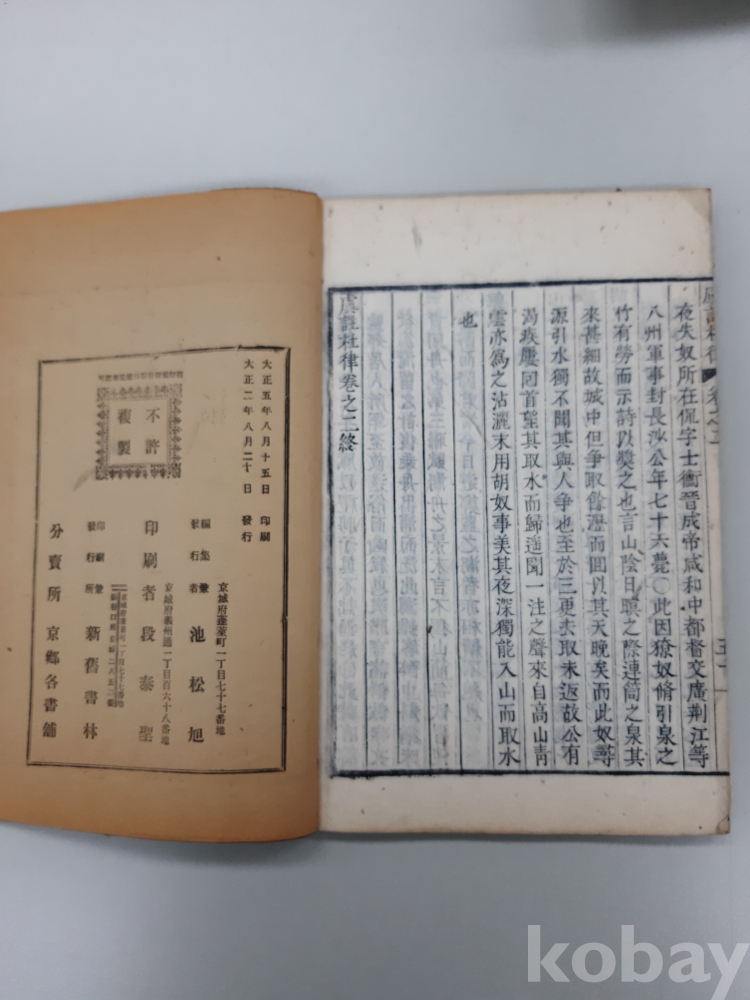 夜失奴所在侃字士衡晉成帝咸和中都督交廣荆江等
八州軍事封長沙公年七十六薨○此因獠奴脩引泉之
竹有勞而示詩以獎之也言山陰日暝之際連筒之泉其
來甚細故城中但爭取餘瀝而回以其天晚矣而此奴尋
源引水獨不聞其與人爭也至於三更去取未返故公有
渴疾屢回首望其取水而歸遥聞一注之聲來自高山靑
雲亦爲之沾灑末用胡奴事美其夜深獨能入山而取水
也
虞註杜律卷之二終
虞註杜律 卷之二
大正五年八月十五日 印刷
大正二年八月二十日 發行
不許
複製
京城府蓬萊町一丁目七十七番地
編集兼
發行者 池松旭
京城府義州通一丁目百六十八番地
印刷者 段泰聖
印刷兼
發行所 新舊書林
分賣所 京鄉各書舖
kobay